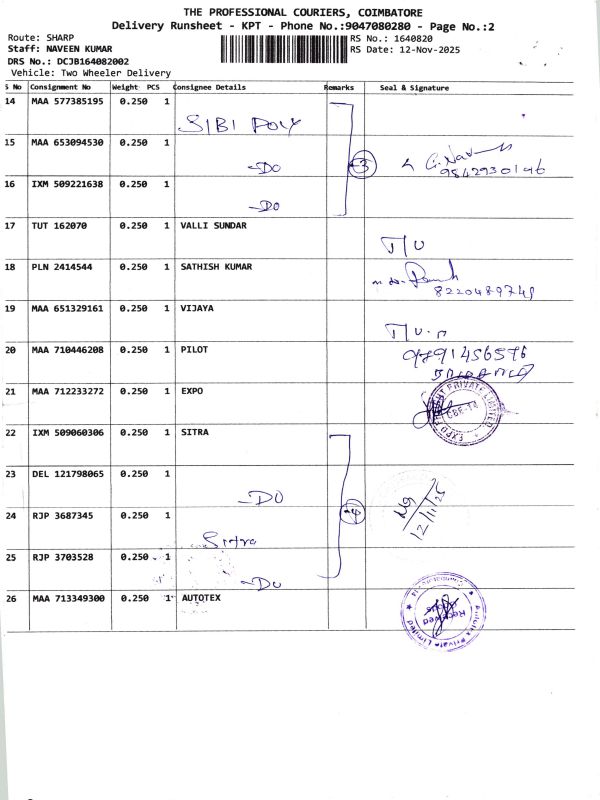 THE PROFESSIONAL COURIERS, COIMBATORE
Delivery Runsheet - KPT - Phone No.:9047080280 - Page No.:2
Route: SHARP
RS No.: 1640820
Staff: NAVEEN KUMAR
RS Date: 12-Nov-2025
DRS No.: DCJB164082002
Vehicle: Two Wheeler Delivery
S No Consignment No Weight PCS Consignee Details Remarks Seal & Signature
14 MAA 577385195 0.250 1
SIBI POLY
15 MAA 653094530 0.250 1
-DO
3
9842930146
16 IXM 509221638 0.250 1
-DO
17 TUT 162070 0.250 1 VALLI SUNDAR
T/U
18 PLN 2414544 0.250 1 SATHISH KUMAR
8220489749
19 MAA 651329161 0.250 1 VIJAYA
20 MAA 710446208 0.250 1 PILOT
9791456576
21 MAA 712233272 0.250 1 EXPO
22 IXM 509060306 0.250 1 SITRA
23 DEL 121798065 0.250 1
-DO
4
12/11/25
24 RJP 3687345 0.250 1
Sitra
25 RJP 3703528 0.250 1
-DO
26 MAA 713349300 0.250 1 AUTOTEX
Autotex Private Limited
Received